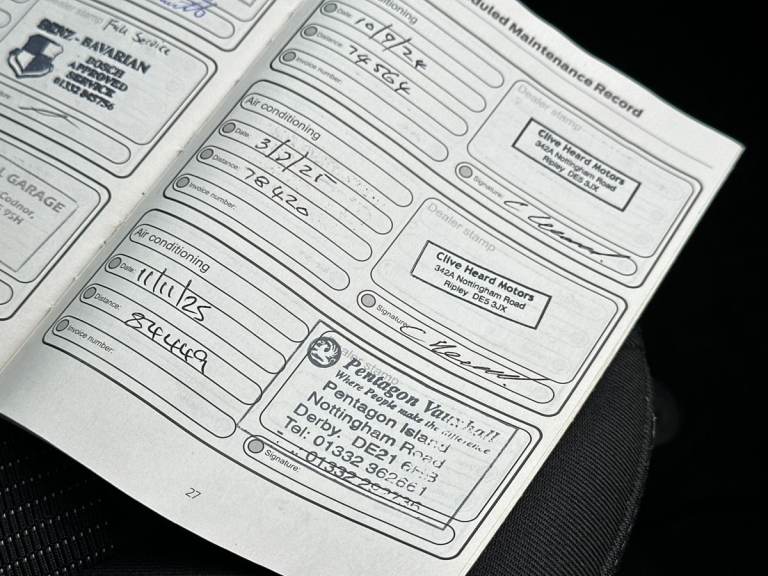 Full Service
BENZ - BAVARIAN
BOSCH
APPROVED
SERVICE
GARAGE
Codnor,
Scheduled Maintenance Record
Date: 10/7/24
Distance: 74564
Invoice number:
Dealer stamp
Clive Heard Motors
342A Nottingham Road
Ripley DE5 3JX
Signature:
Air conditioning
Date: 3/2/25
Distance: 78420
Invoice number:
Dealer stamp
Clive Heard Motors
342A Nottingham Road
Ripley DE5 3JX
Signature:
Air conditioning
Date: 11/11/25
Distance: 84449
Invoice number:
Dealer stamp
Pentagon Vauxhall
Where People make the difference
Pentagon Island
Nottingham Road
Derby. DE21
Tel: 01332 362661
Signature:
27